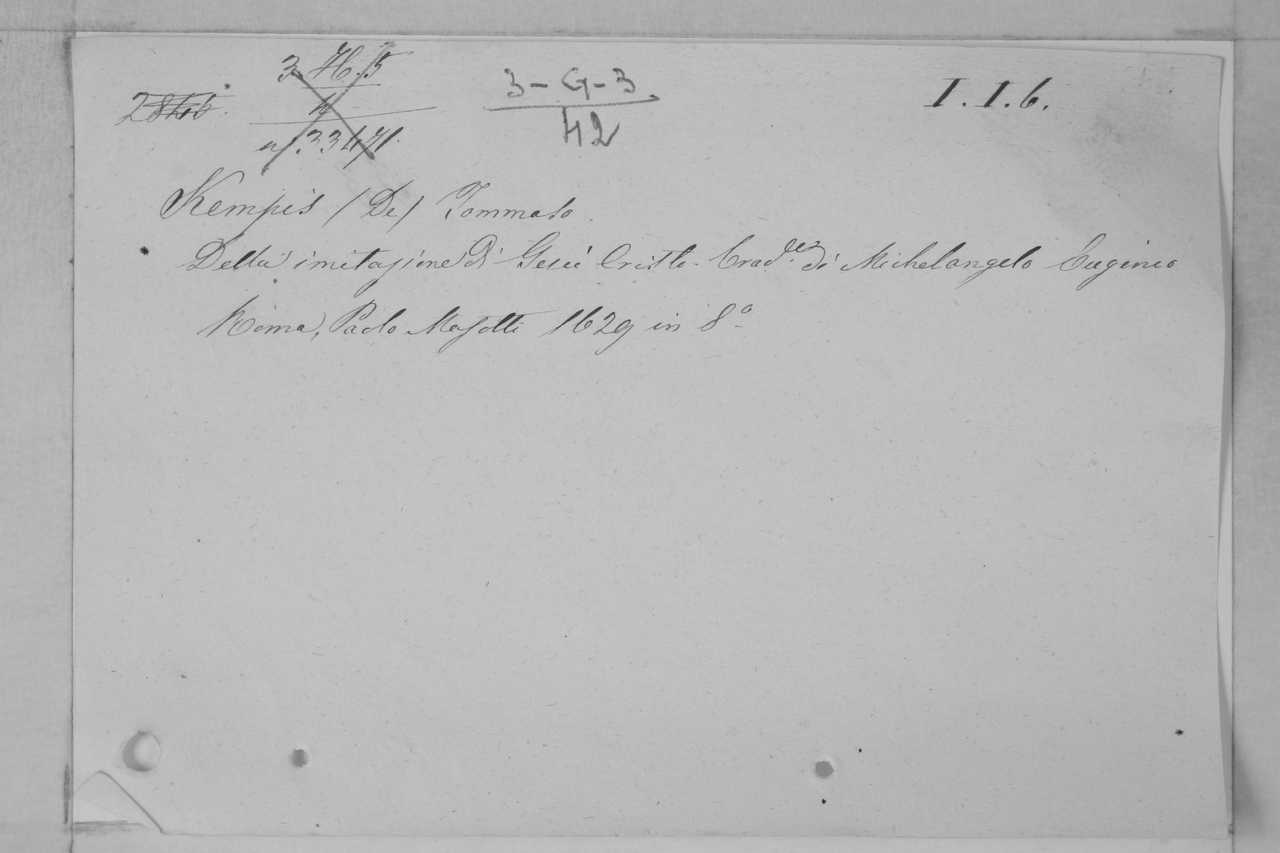 3-G-3
42
I.1.6.
Kempis (De) Tommaso.
Della imitazione di Gesù Cristo. Trad.ne di Michelangelo Euginio
Roma, Paolo Masotti 1629 in 8°